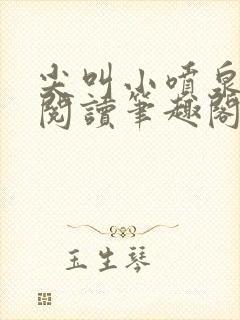 尖叫小噴泉
閱讀筆趣閣
玉生琴